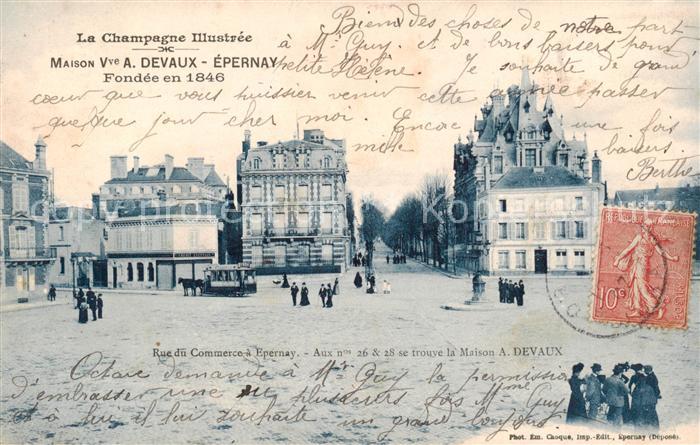 La Champagne Illustrée
Maison Vve A. DEVAUX - ÉPERNAY
Fondée en 1846
Bien des choses de notre part
à Mr Guy. et de bons baisers pour
petite Hélène. Je souhaite de grand
cœur que vous puissiez venir cette année passer
quelque jour chez moi. Encore une fois
mille baisers
Berthe
RÉPUBLIQUE FRANÇAISE
10c
Rue du Commerce à Epernay. - Aux nos 26 & 28 se trouve la Maison A. DEVAUX
Octave demande à Mr Guy la permission
d'embrasser une ou plusieurs fois Mme Guy
et à lui il lui souhaite un grand bonjour
Phot. Em. Choque, Imp.-Edit., Epernay (Déposé)